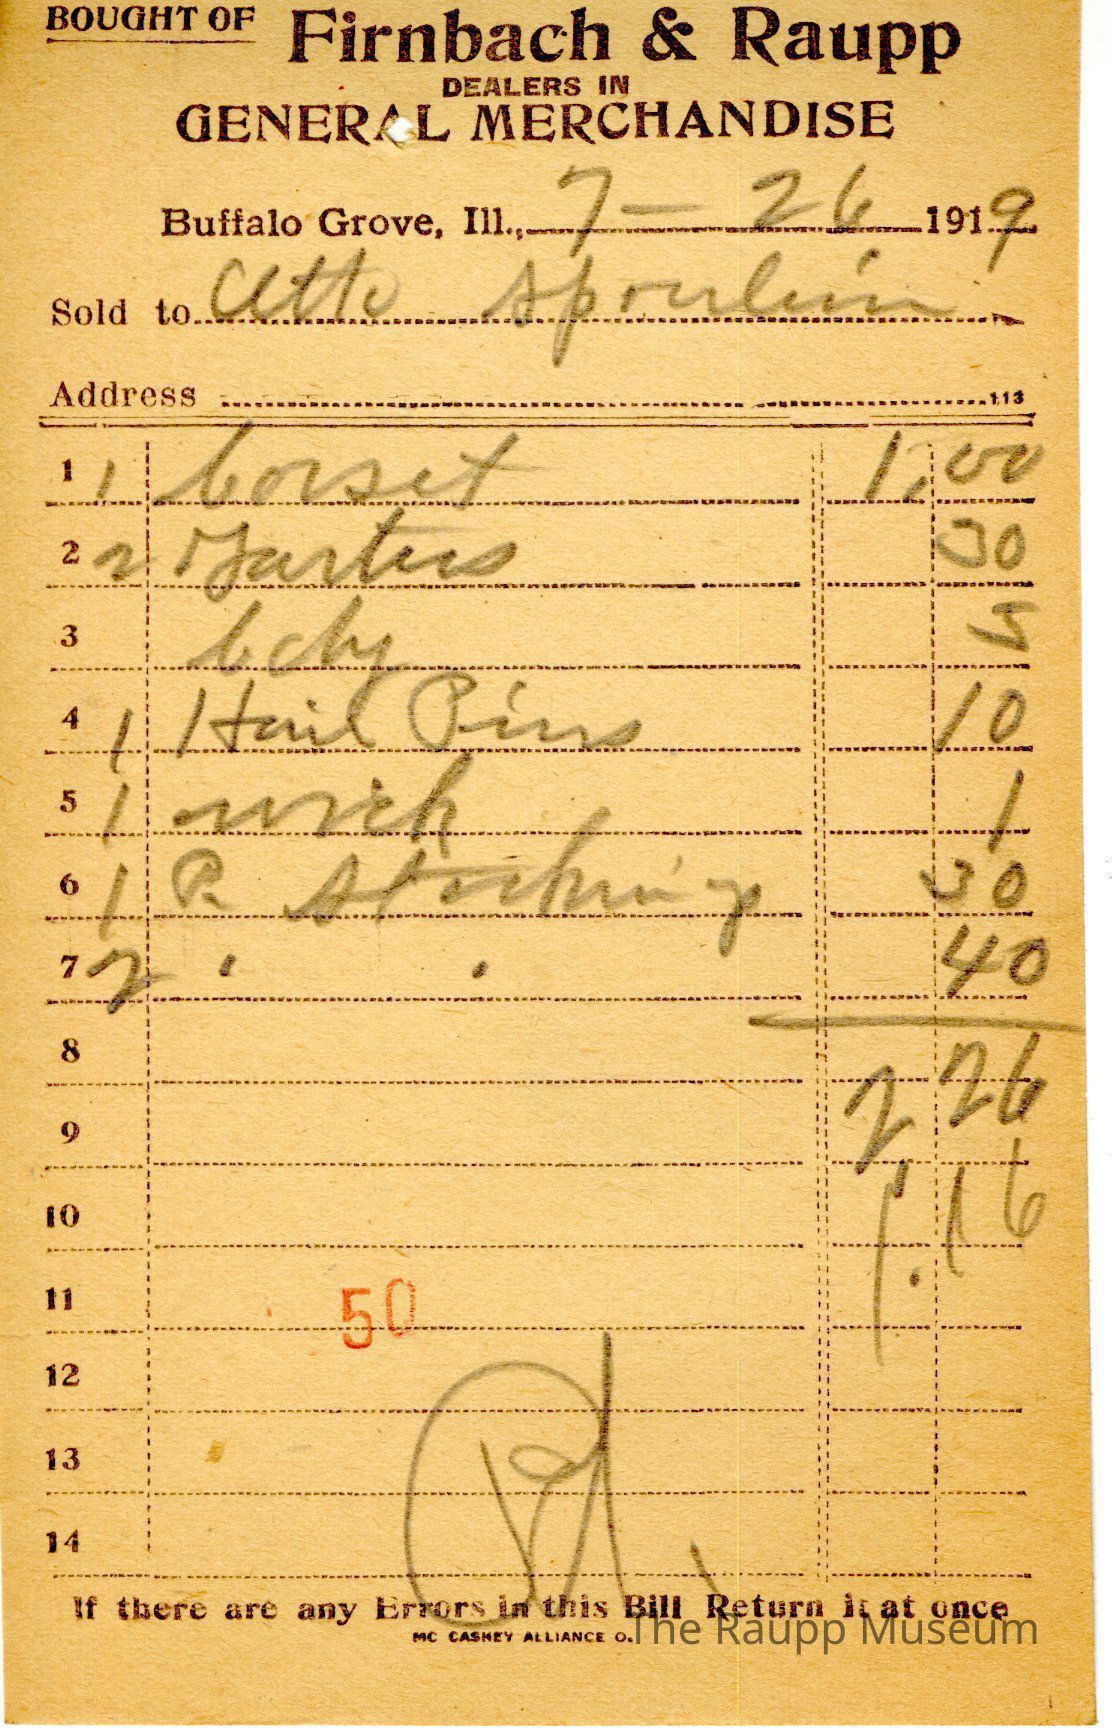 BOUGHT OF Firnbach & Raupp
DEALERS IN
GENERAL MERCHANDISE
Buffalo Grove, Ill., 7 - 26 1919
Sold to Otto
Address 113
1 1 Corset 1.00
2 2 Garters 30
3 5
4 1 Hair Pins 10
5 1 wick 1
6 1 P. Stockings 30
7 2 " " 40
8
2 26
9
1.16
10
11
50
12
13
14
Pd.
If there are any Errors in this Bill Return it at once
MC CASKEY ALLIANCE O.
The Raupp Museum